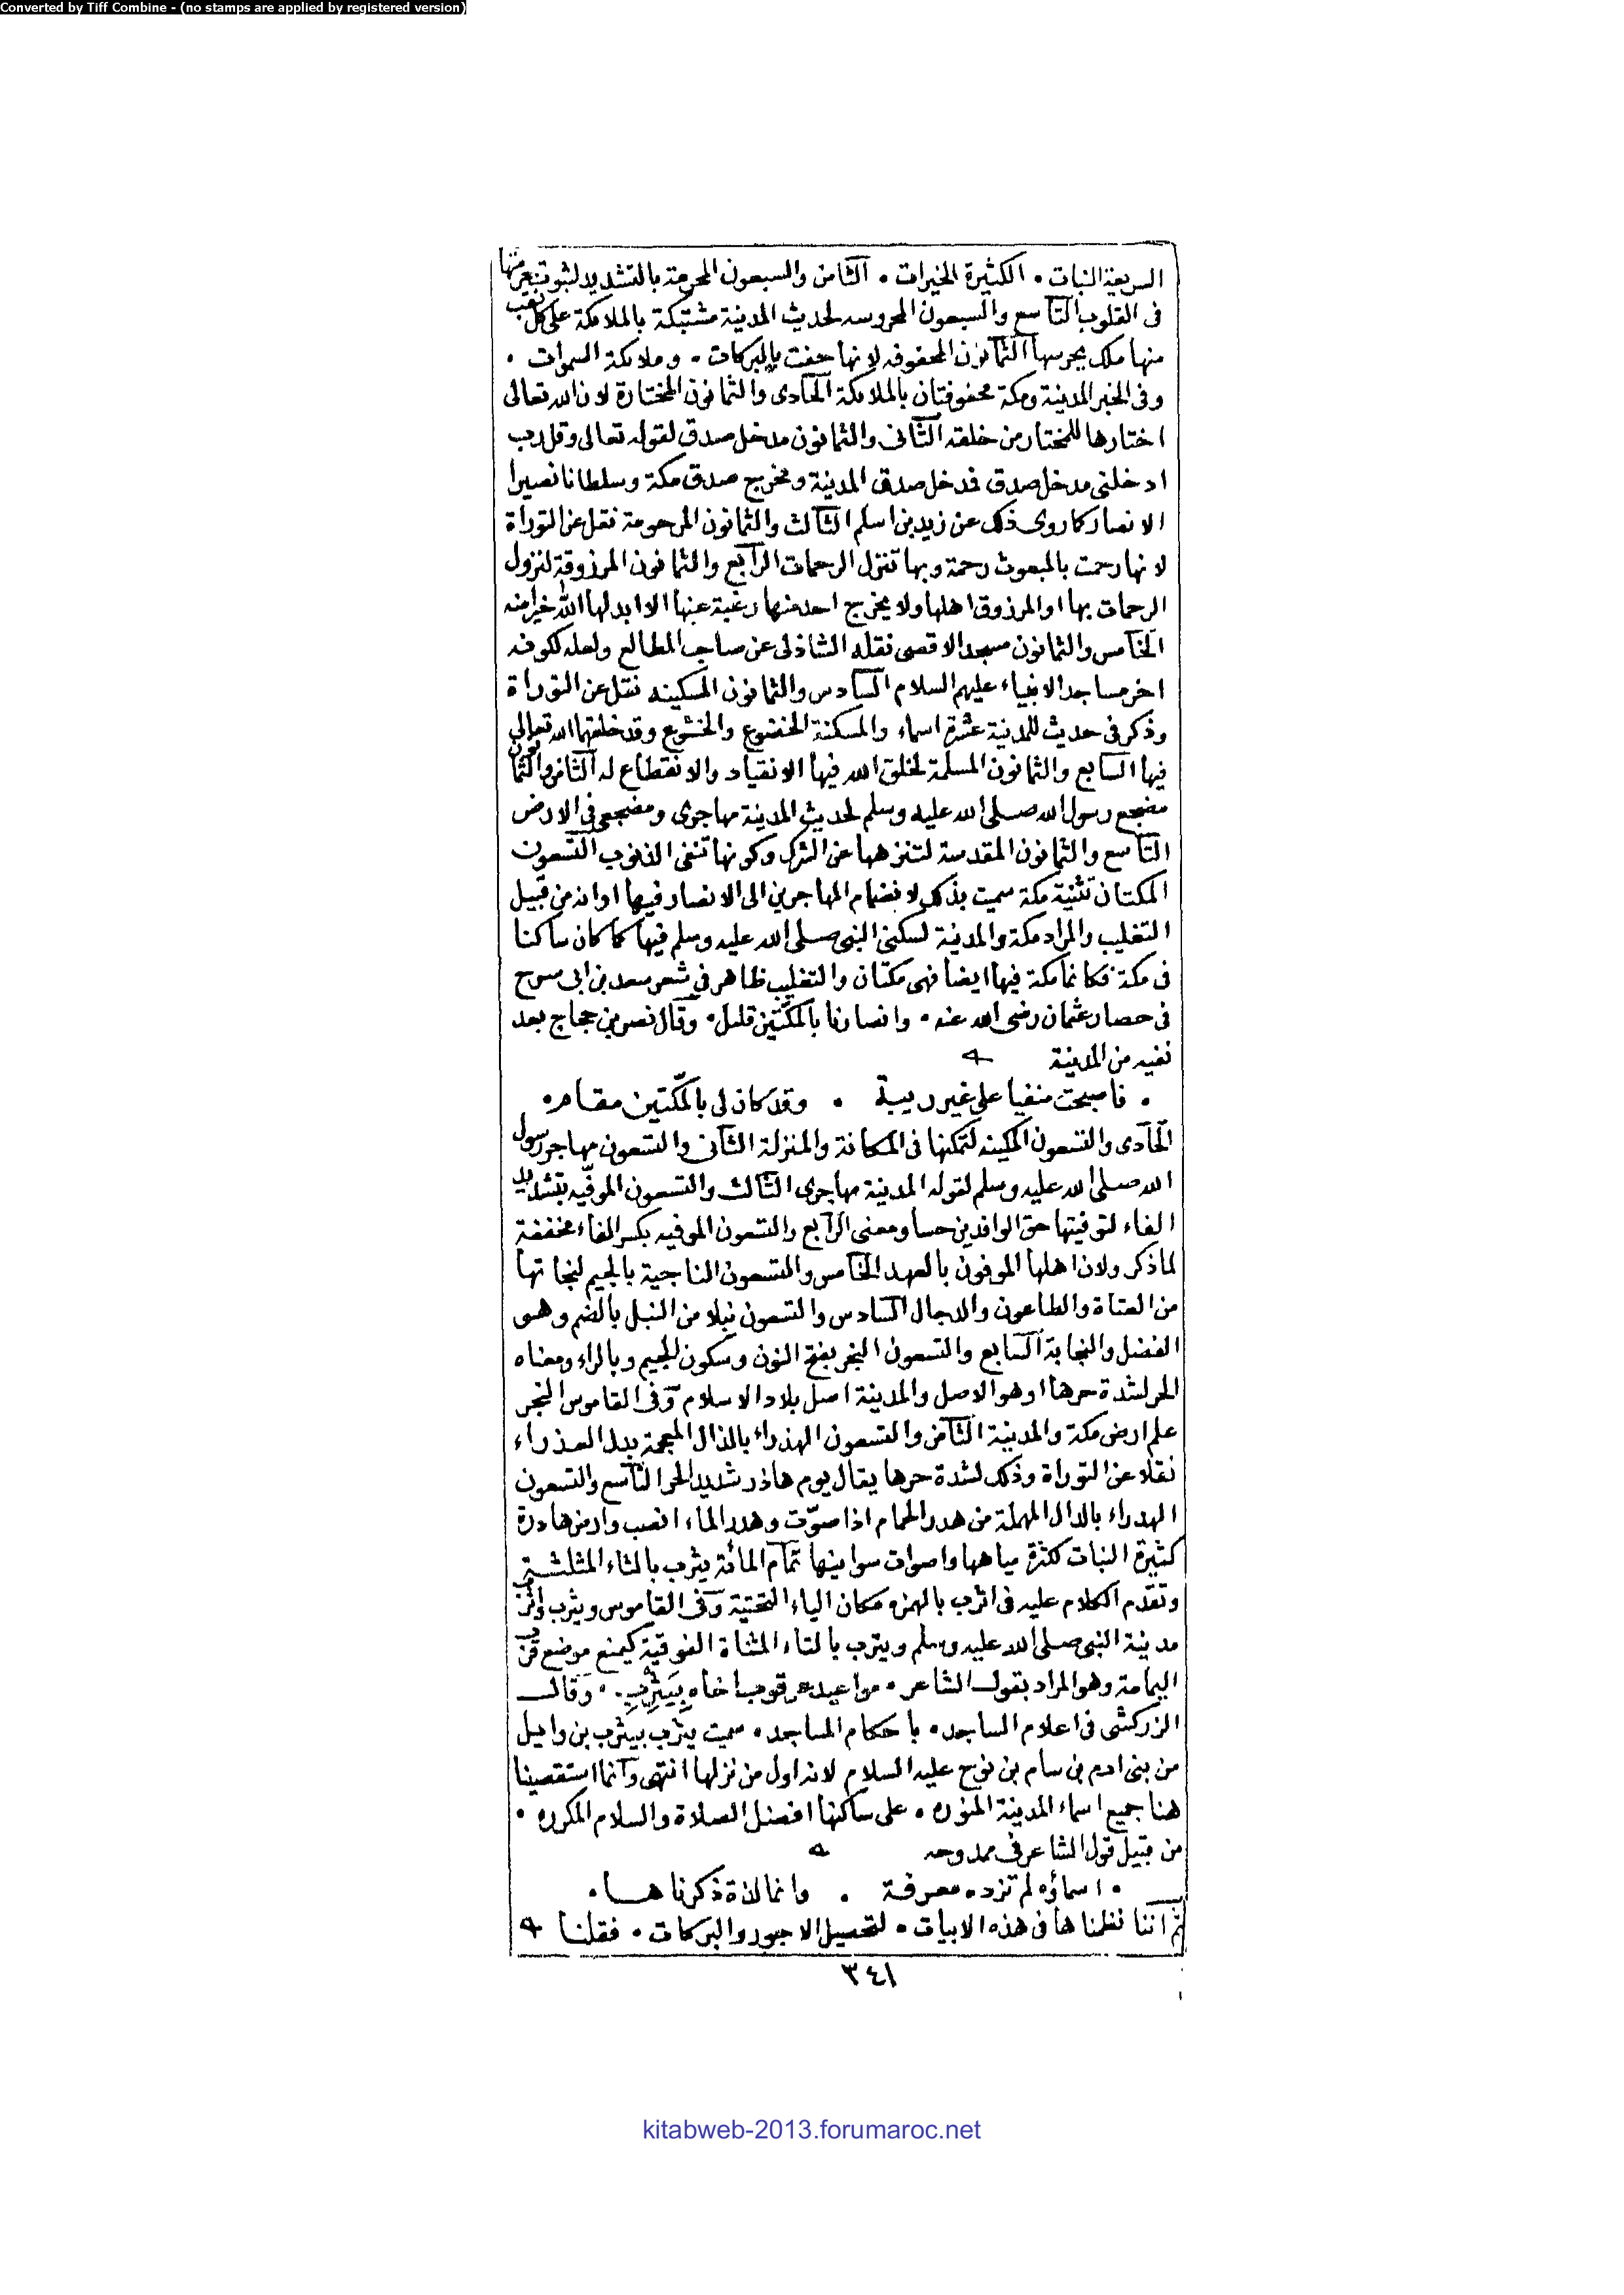 Converted by Tiff Combine - (no stamps are applied by registered version)
السريعة النبات • الكثيرة الخيرات • الثامن والسبعون المحرمة بالتشديد لثبوت
فى القلوب التاسع والسبعون المحروسه لحديث المدينة مشتبكة بالملائكة على كل نقب
منها ملك يحرسها الثمانون المحفوفه لانها حفت بالبركات • وملائكة السموات •
وفى الخبر المدينة ومكة محفوفتان بالملائكة الحادى والثمانون المختارة لان الله تعالى
اختارها للمختار من خلقه الثانى والثمانون مدخل صدق لقوله تعالى وقل رب
ادخلنى مدخل صدق فمدخل صدق المدينة ومخرج صدق مكة وسلطانا نصيرا
الانصار كما روى ذلك عن زيد بن اسلم الثالث والثمانون المرحومة نقل عن التوراة
لانها رحمت بالمبعوث رحمة وبها تنزل الرحمات الرابع والثمانون المرزوقة لنزول
الرحمات بها او المرزوق اهلها ولا يخرج احد منها رغبة عنها الا ابدلها الله خيرا منه
الخامس والثمانون مسجد الاقصى نقله الشاذلى عن صاحب المطالع ولعله لكونه
اخر مساجد الانبياء عليهم السلام السادس والثمانون المسكينه نقل عن التوراة
وذكر فى حديث للمدينة عشرة اسماء والمسكنة الخضوع والخشوع وقد خلقهما الله تعالى
فيها السابع والثمانون المسلمة لخلق الله فيها الانقياد والانقطاع له الثامن والثمانون
مضجع رسول الله صلى الله عليه وسلم لحديث المدينة مهاجرى ومضجعى فى الارض
التاسع والثمانون المقدسة لتنزهها عن الشرك وكونها تنفى الذنوب التسعون
المكتان تثنية مكة سميت بذلك لانضمام المهاجرين الى الانصار فيها اوانه من قبيل
التغليب والمراد مكة والمدينة لسكنى النبى صلى الله عليه وسلم فيها كما كان ساكنا
فى مكة فكانما مكة فيها ايضا فهى مكتان والتغليب ظاهر فى شعر سعد بن ابى سرح
فى حصار عثمان رضى الله عنه • وانصارنا بالمكّتين قليل • وقال نصر بن حجاج بعد
نفيه من المدينة
• فاصبحت منفيا على غير ريبة • وقد كان لى بالمكّتين مقام •
الحادى والتسعون المكينه لتمكنها فى المكانة والمنزلة الثانى والتسعون مهاجر رسول
الله صلى الله عليه وسلم لقوله المدينة مهاجرى الثالث والتسعون الموفّيه بتشديد
الفاء لتوفيتها حق الوافدين حسا ومعنى الرابع والتسعون الموفيه بكسر الفاء مخففة
لما ذكر ولان اهلها الموفون بالعهد الخامس والتسعون الناجية بالجيم لنجاتها
من العتاة والطاعون والدجال السادس والتسعون نبلا من النبل بالضم وهو
الفضل والنجابة السابع والتسعون النجر بفتح النون وسكون الجيم وبالراء ومعناه
الحر لشدة حرها اوهو الاصل والمدينة اصل بلاد الاسلام وفى القاموس النجر
علم ارض مكة والمدينة الثامن والتسعون الهذراء بالذال المعجمة بدل العذراء
نقلا عن التوراة وذلك لشدة حرها يقال يوم هاذر شديد الحر التاسع والتسعون
الهدراء بالدال المهملة من هدر الحمام اذا صوّت وهدر الماء انصب وارض هادرة
كثيرة النبات لكثرة مياهها واصوات سوانيها تمام المائة يثرب بالثاء المثلثة
وتقدم الكلام عليه فى اثرب بالهمزه مكان الياء التحتية وفى القاموس ويثرب واثرب
مدينة النبى صلى الله عليه وسلم ويترب بالتاء المثناة الفوقية كيمنع موضع قرب
اليمامة وهو المراد بقول الشاعر • مواعيد عرقوب اخاه بيترب • وقال
الزركشى فى اعلام الساجد • باحكام المساجد • سميت يثرب بيثرب بن وايل
من بنى ارم بن سام بن نوح عليه السلام لانه اول من نزلها انتهى وانما استقصينا
هنا جميع اسماء المدينة المنوره • على ساكنها افضل الصلاة والسلام المكرره •
من قبيل قول الشاعر فى ممدوحه
• اسماؤه لم تزده معرفة • وانما لذة ذكرناها •
ثم اننا نظمناها فى هذه الابيات • لتحصيل الاجور والبركات • فقلنا
٣٤١
kitabweb-2013.forumaroc.net